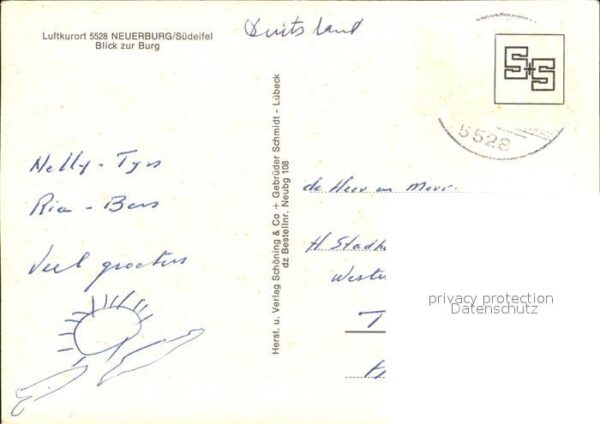 Luftkurort 5528 NEUERBURG/Südeifel
Blick zur Burg
Duitsland
S+S
5528
Nelly - Tys
Ria - Bens
Veel groeten
Herst. u. Verlag Schöning & Co + Gebrüder Schmidt - Lübeck
dz Bestellnr. Neubg 108
de Heer en Mevr.
H Stadh
Weste
T
privacy protection
Datenschutz